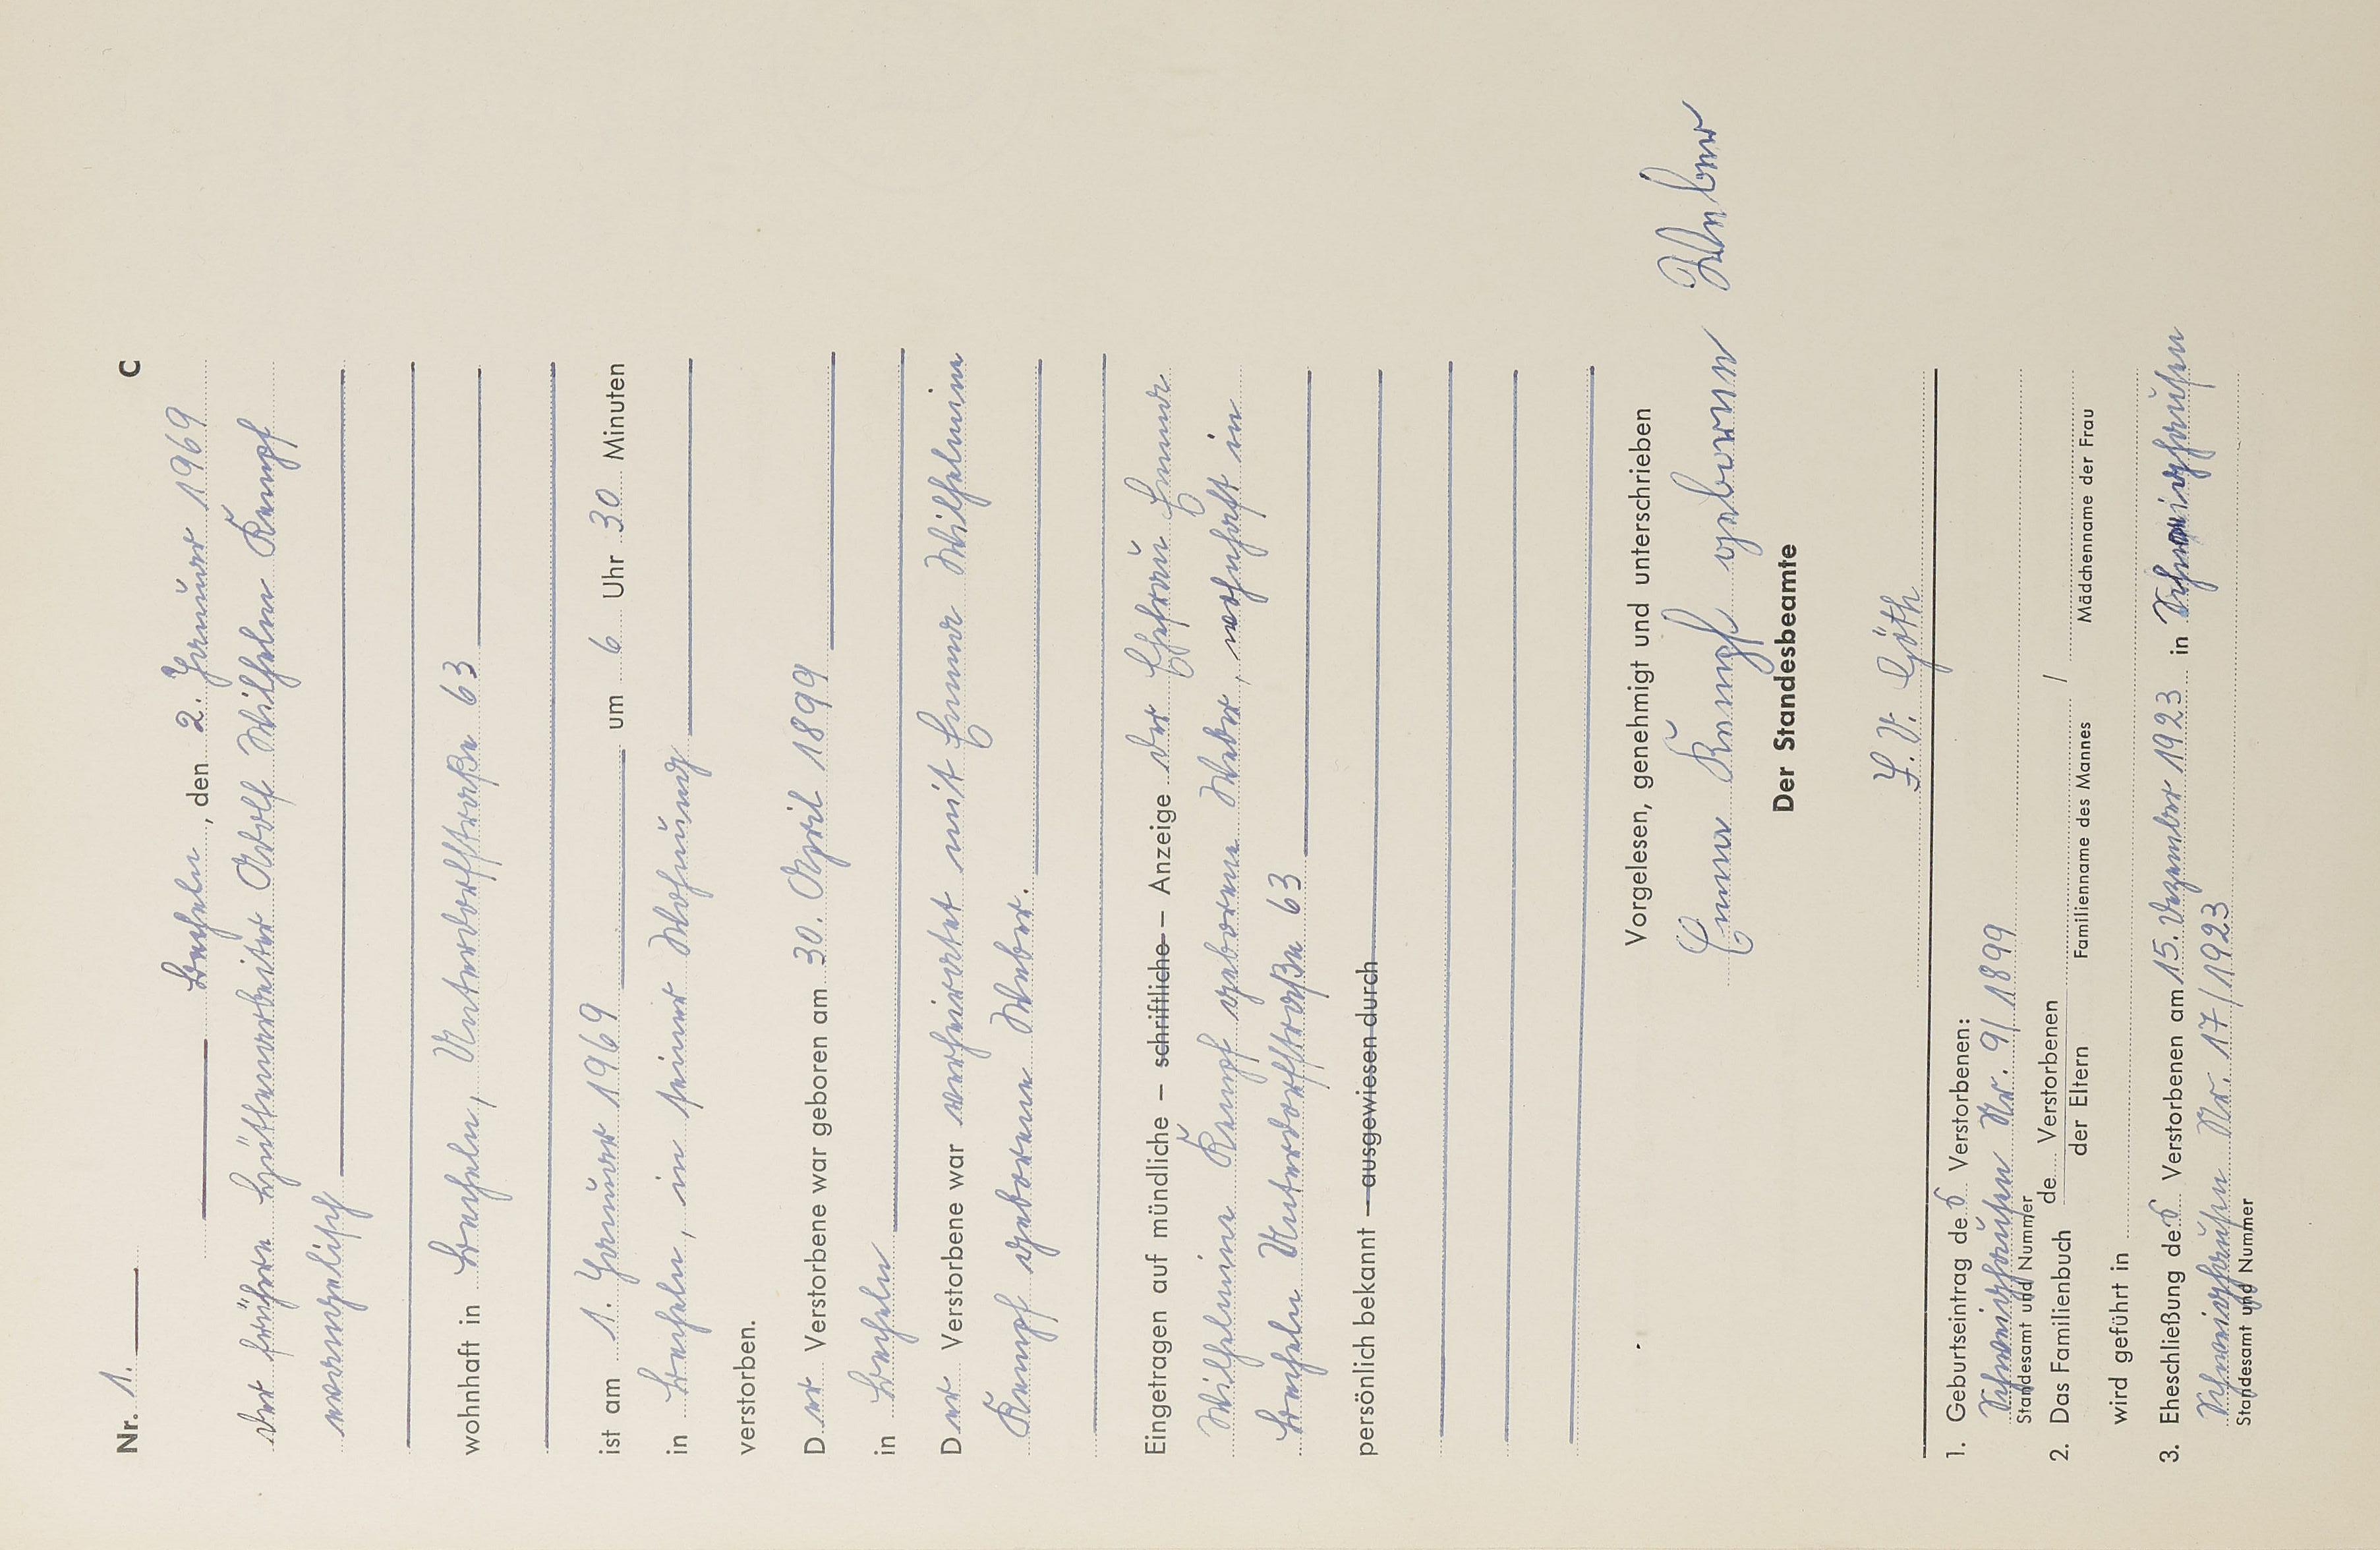 Nr. 1. C
Becheln, den 2. Januar 1969
Der frühere Hüttenarbeiter Adolf Wilhelm Kempf
evangelisch
wohnhaft in Becheln, Unterdorfstraße 63
ist am 1. Januar 1969 um 6 Uhr 30 Minuten
in Becheln, in seiner Wohnung
verstorben.
Der Verstorbene war geboren am 30. April 1899
in Becheln
Der Verstorbene war verheiratet mit Emma Wilhelmine
Kempf geborene Weber.
Eingetragen auf mündliche – schriftliche – Anzeige der Ehefrau Emma
Wilhelmine Kempf geborene Weber, wohnhaft in
Becheln Unterdorfstraße 63
persönlich bekannt – ausgewiesen durch
Vorgelesen, genehmigt und unterschrieben
Emma Kempf geborene Weber
Der Standesbeamte
I. V. Göth
1. Geburtseintrag des Verstorbenen:
Schweighausen Nr. 9/1899
Standesamt und Nummer
2. Das Familienbuch de Verstorbenen /
der Eltern Familienname des Mannes Mädchenname der Frau
wird geführt in
3. Eheschließung des Verstorbenen am 15. Dezember 1923 in Schweighausen
Schweighausen Nr. 17/1923
Standesamt und Nummer